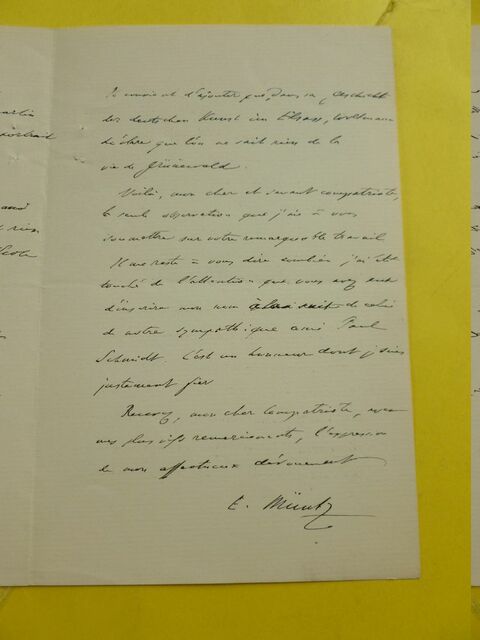 Il convient d'ajouter que, dans sa Geschichte
der deutschen Kunst im Elsass, Woltmann
déclare que l'on ne sait rien de la
vie de Grünewald.
Voilà, mon cher et savant compatriote,
la seule observation que j'ais à vous
soumettre sur votre remarquable travail
Il me reste à vous dire combien j'ai été
touché de l'attention que vous avez eue
d'inscrire mon nom à la suite de celui
de notre sympathique ami Paul
Schmidt. C'est un honneur dont je suis
justement fier
Recevez, mon cher Compatriote, avec
mes plus vifs remerciements, l'expression
de mon affectueux dévouement
E. Müntz
portrait